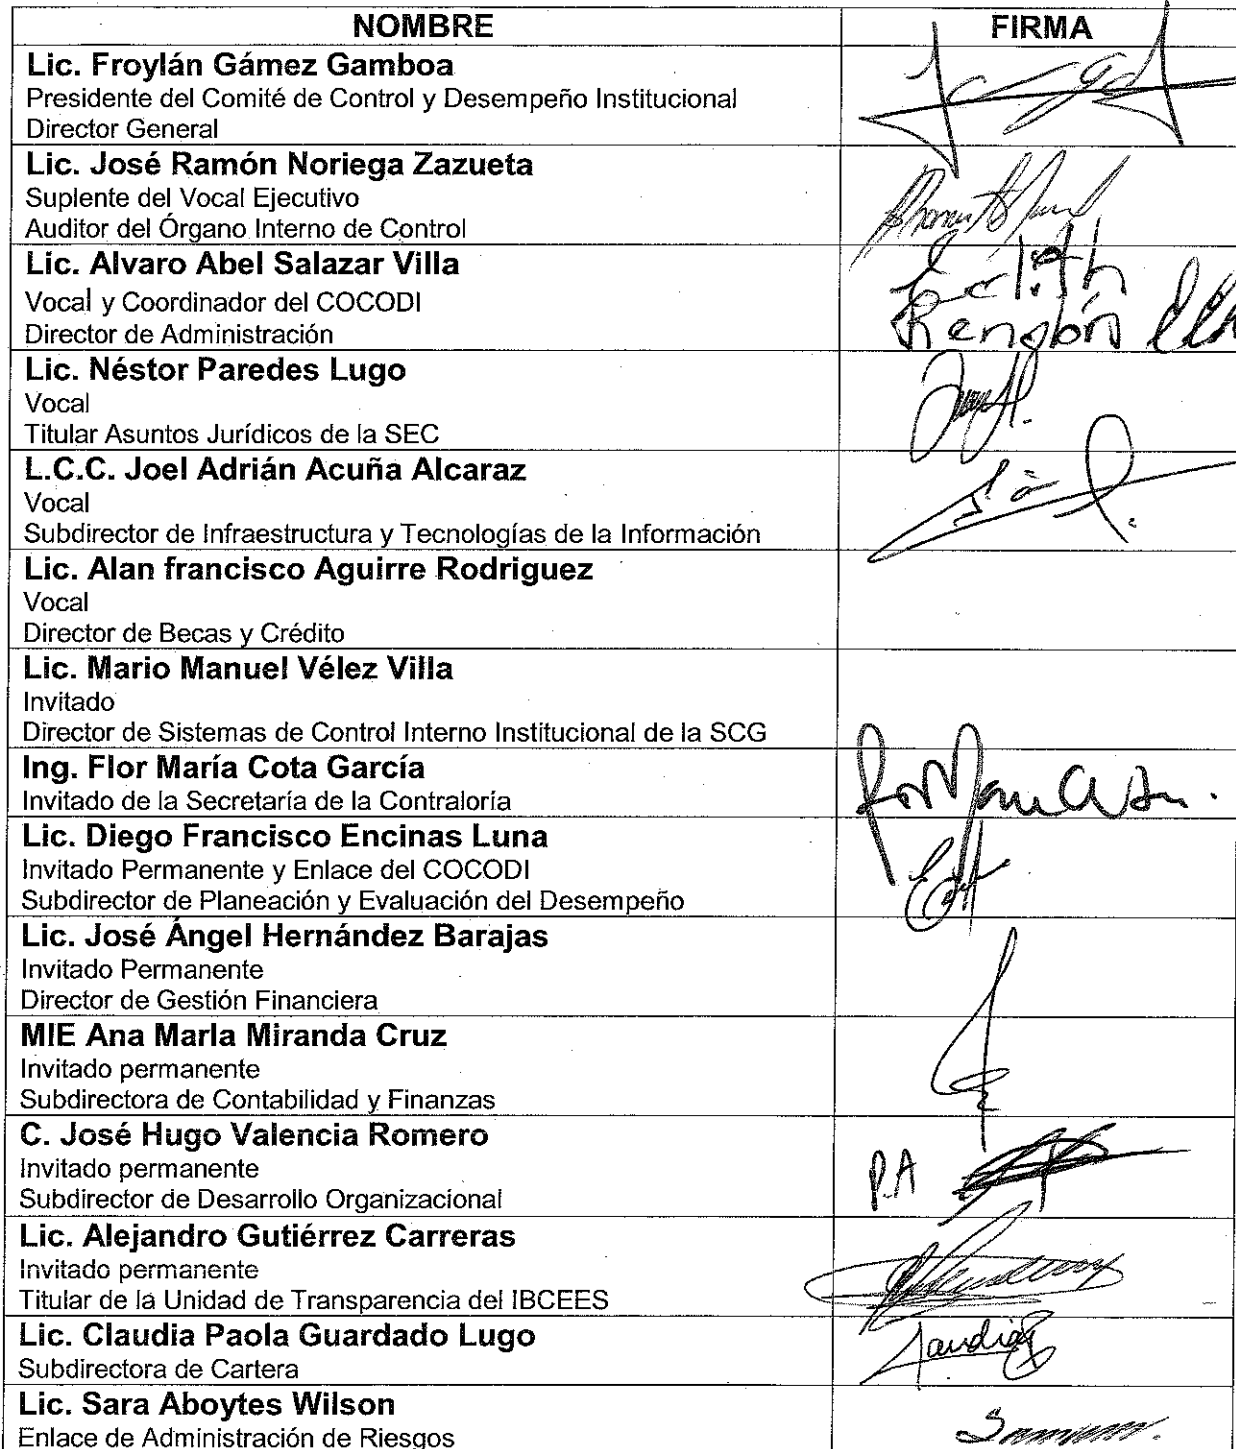 NOMBRE FIRMA
Lic. Froylán Gámez Gamboa
Presidente del Comité de Control y Desempeño Institucional
Director General
Lic. José Ramón Noriega Zazueta
Suplente del Vocal Ejecutivo
Auditor del Órgano Interno de Control
Lic. Alvaro Abel Salazar Villa
Vocal y Coordinador del COCODI
Director de Administración
Rengón
Lic. Néstor Paredes Lugo
Vocal
Titular Asuntos Jurídicos de la SEC
L.C.C. Joel Adrián Acuña Alcaraz
Vocal
Subdirector de Infraestructura y Tecnologías de la Información
Lic. Alan francisco Aguirre Rodriguez
Vocal
Director de Becas y Crédito
Lic. Mario Manuel Vélez Villa
Invitado
Director de Sistemas de Control Interno Institucional de la SCG
Ing. Flor María Cota García
Invitado de la Secretaría de la Contraloría
Lic. Diego Francisco Encinas Luna
Invitado Permanente y Enlace del COCODI
Subdirector de Planeación y Evaluación del Desempeño
Lic. José Ángel Hernández Barajas
Invitado Permanente
Director de Gestión Financiera
MIE Ana María Miranda Cruz
Invitado permanente
Subdirectora de Contabilidad y Finanzas
C. José Hugo Valencia Romero
Invitado permanente
P.A
Subdirector de Desarrollo Organizacional
Lic. Alejandro Gutiérrez Carreras
Invitado permanente
Titular de la Unidad de Transparencia del IBCEES
Lic. Claudia Paola Guardado Lugo
Subdirectora de Cartera
Lic. Sara Aboytes Wilson
Enlace de Administración de Riesgos